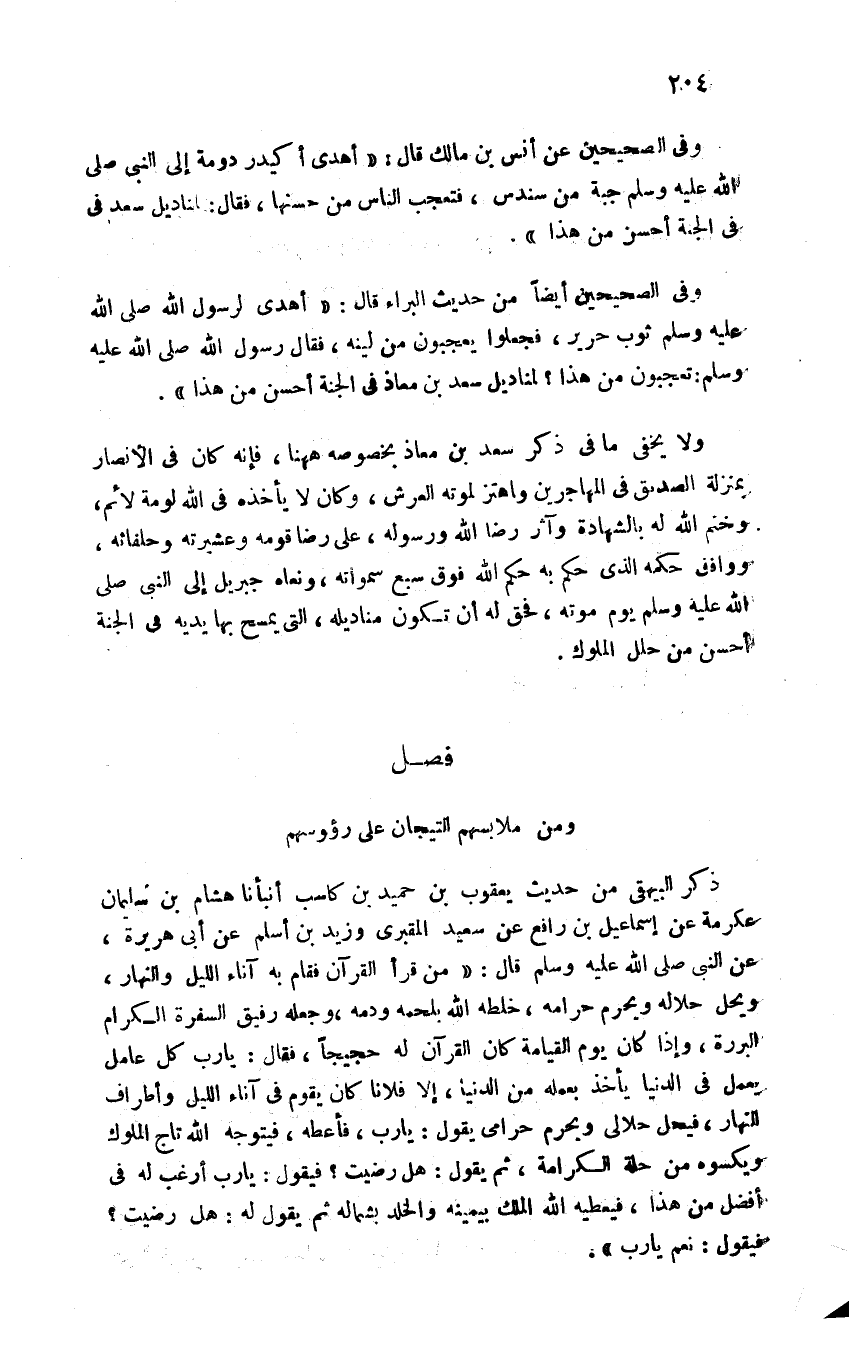 ٢٠٤
وفى الصحيحين عن أنس بن مالك قال : « أهدى أكيدر دومة إلى النبى صلى
الله عليه وسلم جبة من سندس ، فتعجب الناس من حسنها ، فقال : لمناديل سعد فى
فى الجنة أحسن من هذا » .
وفى الصحيحين أيضاً من حديث البراء قال : « أهدى لرسول الله صلى الله
عليه وسلم ثوب حرير ، فجعلوا يعجبون من لينه ، فقال رسول الله صلى الله عليه
وسلم : تعجبون من هذا ؟ لمناديل سعد بن معاذ فى الجنة أحسن من هذا » .
ولا يخفى ما فى ذكر سعد بن معاذ بخصوصه ههنا ، فإنه كان فى الأنصار
بمنزلة الصديق فى المهاجرين واهتز لموته العرش ، وكان لا يأخذه فى الله لومة لائم ،
وختم الله له بالشهادة وآثر رضا الله ورسوله ، على رضا قومه وعشيرته وحلفائه ،
ووافق حكمه الذى حكم به حكم الله فوق سبع سمواته ، ونعاه جبريل إلى النبى صلى
الله عليه وسلم يوم موته ، فحق له أن تكون مناديله ، التى يمسح بها يديه فى الجنة
أحسن من حلل الملوك .
فصل
ومن ملابسهم التيجان على رؤوسهم
ذكر البيهقى من حديث يعقوب بن حميد بن كاسب أنبأنا هشام بن سليمان
عكرمة عن إسماعيل بن رافع عن سعيد المقبرى وزيد بن أسلم عن أبى هريرة ،
عن النبى صلى الله عليه وسلم قال : « من قرأ القرآن فقام به آناء الليل والنهار ،
ويحل حلاله ويحرم حرامه ، خلطه الله بلحمه ودمه ، وجعله رفيق السفرة الكرام
البررة ، وإذا كان يوم القيامة كان القرآن له حجيجاً ، فقال : يارب كل عامل
يعمل فى الدنيا يأخذ بعمله من الدنيا ، إلا فلانا كان يقوم فى آناء الليل وأطراف
النهار ، فيحل حلالى ويحرم حرامى يقول : يارب ، فأعطه ، فيتوجه الله تاج الملوك
ويكسوه من حلة الكرامة ، ثم يقول : هل رضيت ؟ فيقول : يارب أرغب له فى
أفضل من هذا ، فيعطيه الله الملك بيمينه والخلد بشماله ثم يقول له : هل رضيت ؟
فيقول : نعم يارب » .